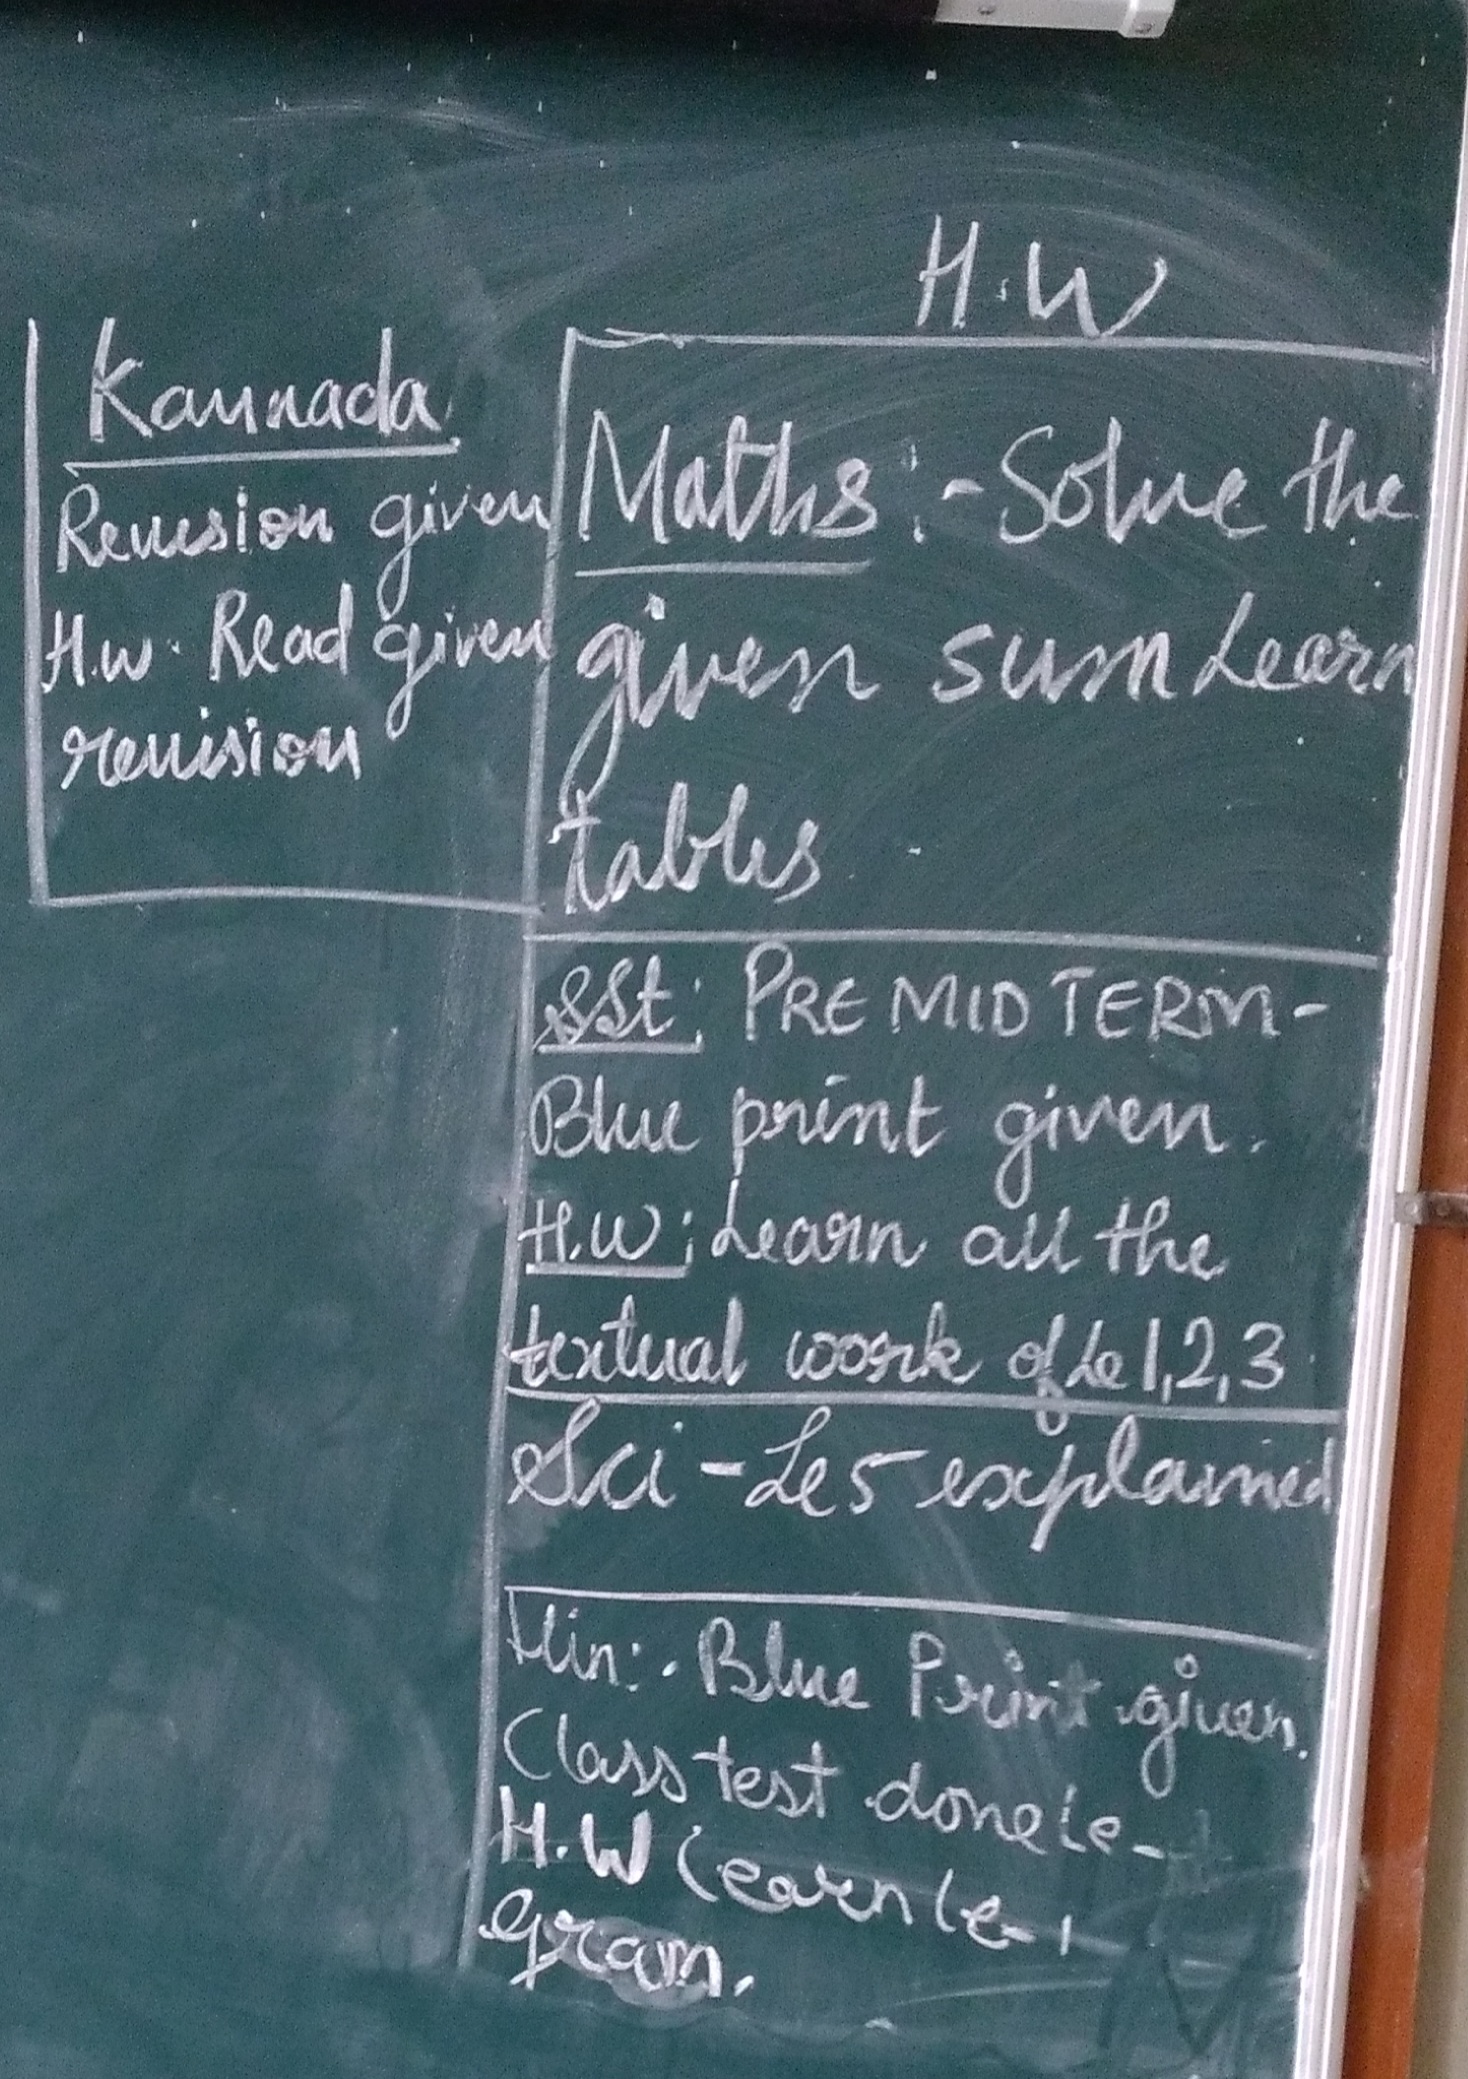 H.W
Kannada
Revision given
H.w. Read given
revision
Maths :- Solve the
given sum Learn
tables
SSt: PRE MID TERM-
Blue print given.
H.W: Learn all the
textual work of Le 1,2,3
Sci - Le 5 explained
Hin:- Blue Print given.
Class test done Le-
H.W Learn Le-1
gram.